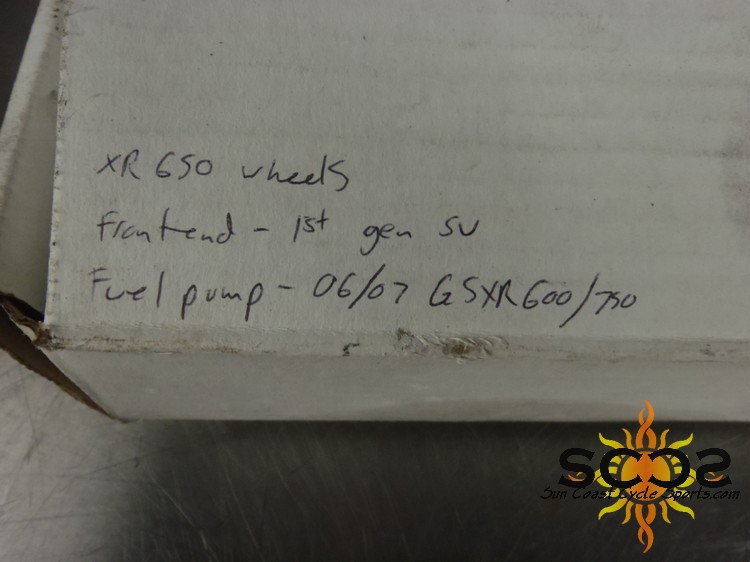 XR650 wheels
Frontend - 1st gen SV
Fuel pump - 06/07 GSXR600/750
SCCS
Sun Coast Cycle Sports.com